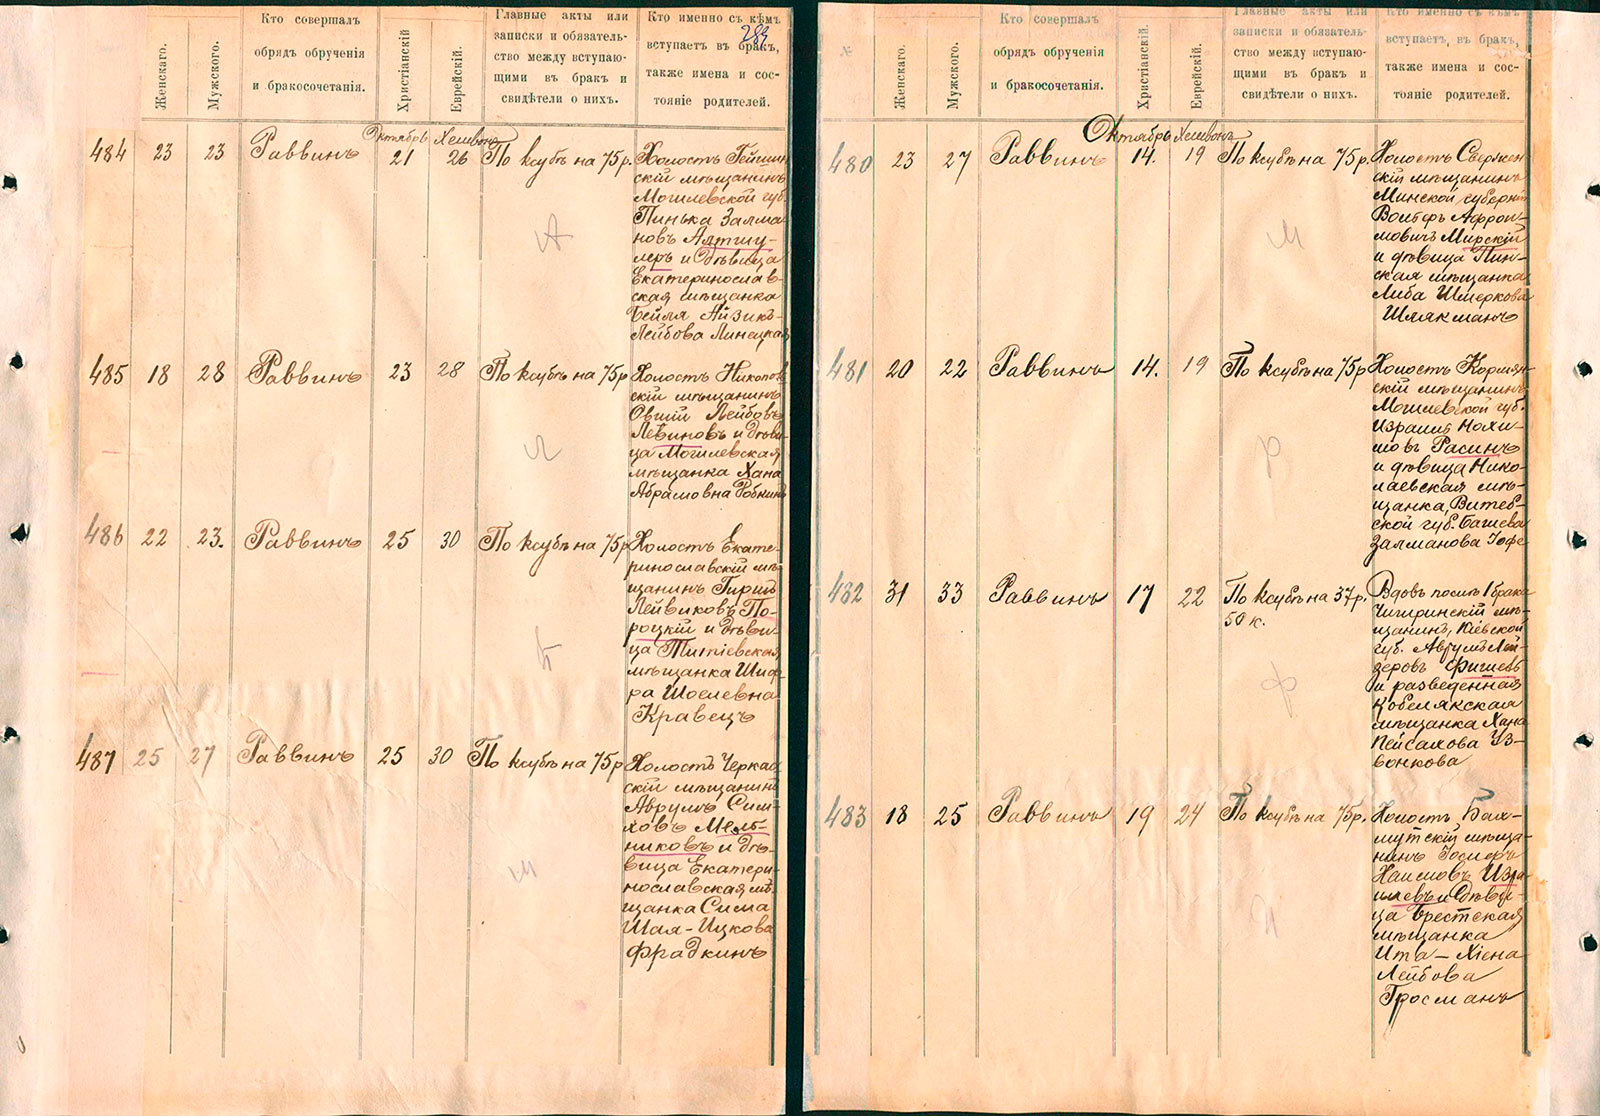 289
Женскаго.
Мужского.
Кто совершалъ
обрядъ обрученія
и бракосочетанія.
Христіанскій
Еврейскій.
Главные акты или
записки и обязатель-
ство между вступаю-
щими въ бракъ и
свидѣтели о нихъ.
Кто именно съ кѣмъ
вступаетъ въ бракъ,
также имена и сос-
тояніе родителей.
Октябрь Хешвонъ
484 23 23 Раввинъ 21 26 По ксубѣ на 75 р.
Холостъ
скій мѣщанинъ
Могилевской губ.
Пинька Залма-
новъ Алтшу-
леръ и дѣвица
Екатеринослав-
ская мѣщанка
Бейля Айзикъ-
Лейбова Линецкая
485 18 28 Раввинъ 23 28 По ксубѣ на 75 р
Холостъ Никопол
скій мѣщанинъ
Овший Лейбовъ
Левиновъ и дѣви-
ца Могилевская
мѣщанка Хана
Абрамовна Рабкинъ
486 22 23. Раввинъ 25 30 По ксубѣ на 75 р
Холостъ Екате-
ринославскій мѣ-
щанинъ Гирш
Лейвиковъ По-
роцкій и дѣви-
ца Титіевская
мѣщанка Шиф-
ра Шоелевна
Кравецъ
487 25 27 Раввинъ 25 30 По ксубѣ на 75 р
Холостъ Черкас
скій мѣщанинъ
Аврумъ Сим-
ховъ Мель-
никовъ и дѣ-
вица Екатери-
нославская мѣ-
щанка Сима
Шая-Ицкова
Фрадкинъ
№
Женскаго.
Мужского.
Кто совершалъ
обрядъ обрученія
и бракосочетанія.
Христіанскій.
Еврейскій.
Главные акты или
записки и обязатель-
ство между вступаю-
щими въ бракъ и
свидѣтели о нихъ.
Кто именно съ кѣмъ
вступаетъ, въ бракъ,
также имена и сос-
тояніе родителей.
Октябрь Хешвонъ
480 23 27 Раввинъ 14. 19 По ксубѣ на 75 р.
Холостъ Свержен
скій мѣщанинъ
Минской губерніи
Вольфъ Афрои-
мовичъ Мирскій
и дѣвица Пин-
ская мѣщанка
Либа Шмеркова
Шлякманъ
481 20 22 Раввинъ 14. 19 По ксубѣ на 75 р
Холостъ Кормян
скій мѣщанинъ
Могилевской губ.
Израиль Нохи-
мовъ Расинъ
и дѣвица Нико-
лаевская мѣ-
щанка, Витеб-
ской губ. Башева
Залманова Іофе
482 31 33 Раввинъ 17 22 По ксубѣ на 37 р.
50 к.
Вдовъ послѣ 1 брака
Чигиринскій мѣ-
щанинъ, Кіевской
губ. Аврумъ Лей-
зеровъ Фишевъ
и разведенная
Кобелякская
мѣщанка Хана
Пейсахова Уз-
вонкова
483 18 25 Раввинъ 19 24 По ксубѣ на 75 р.
Холостъ Бах-
мутскій мѣща-
нинъ Іосифъ
Хаимовъ Изра-
илевъ и дѣви-
ца Брестская
мѣщанка
Ита-Хіена
Лейбова
Гросманъ